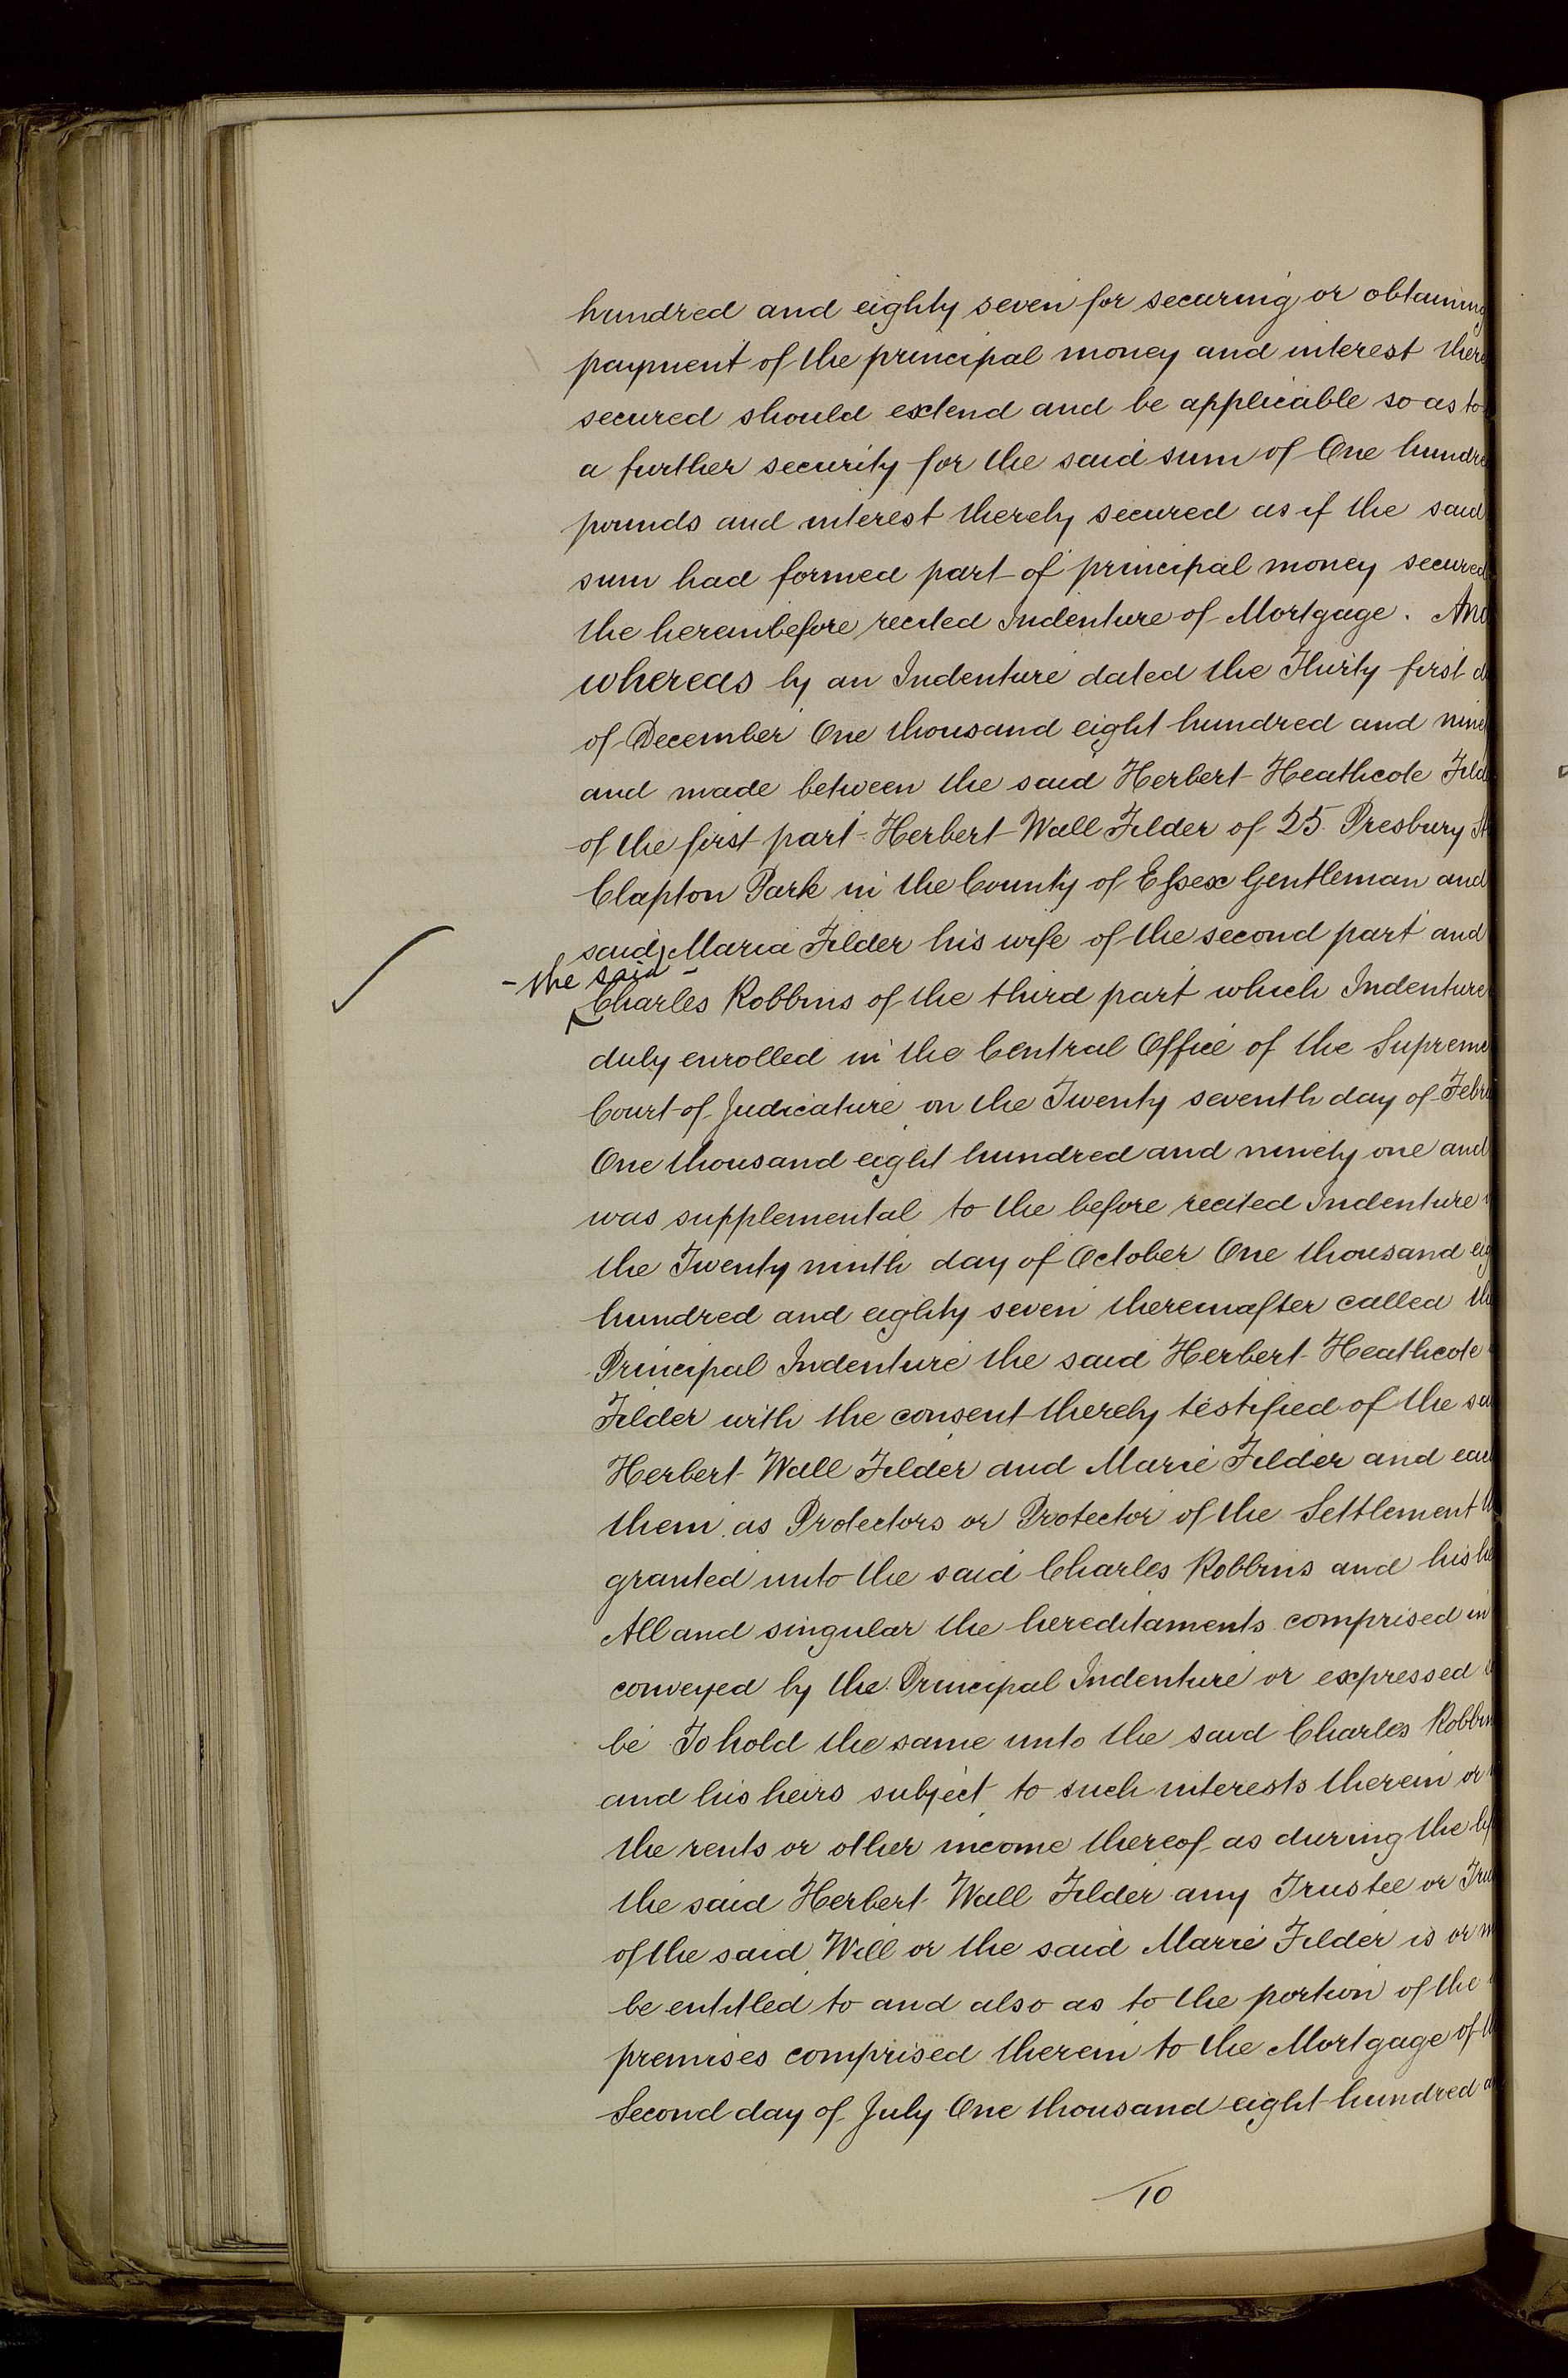 hundred and eighty seven for securing or obtaining
payment of the principal money and interest there
secured should extend and be applicable so as to
a further security for the said sum of One hundre
pounds and interest thereby secured as if the said
sum had formed part of principal money secured
the hereinbefore recited Indenture of Mortgage. And
whereas by an Indenture dated the Thirty first d
of December One thousand eight hundred and nine
and made between the said Herbert Heathcote Feld
of the first part Herbert Wall Felder of 25 Presbury St
Clapton Park in the County of Essex Gentleman and
said Maria Felder his wife of the second part and
- the said -
Charles Robbins of the third part which Indenture
duly enrolled in the Central Office of the Supreme
Court of Judicature on the Twenty seventh day of Febru
One thousand eight hundred and ninety one and
was supplemental to the before recited Indenture
the Twenty ninth day of October One thousand eig
hundred and eighty seven thereinafter called th
Principal Indenture the said Herbert Heathcote
Felder with the consent thereby testified of the sa
Herbert Wall Felder and Marie Felder and eac
them as Protectors or Protector of the Settlement th
granted unto the said Charles Robbins and his he
All and singular the hereditaments comprised in
conveyed by the Principal Indenture or expressed
be To hold the same unto the said Charles Robbin
and his heirs subject to such interests therein or
the rents or other income thereof as during the lif
the said Herbert Wall Felder any Trustee or Tru
of the said Will or the said Marie Felder is or m
be entitled to and also as to the portion of the
premises comprised therein to the Mortgage of th
Second day of July One thousand eight hundred a
10